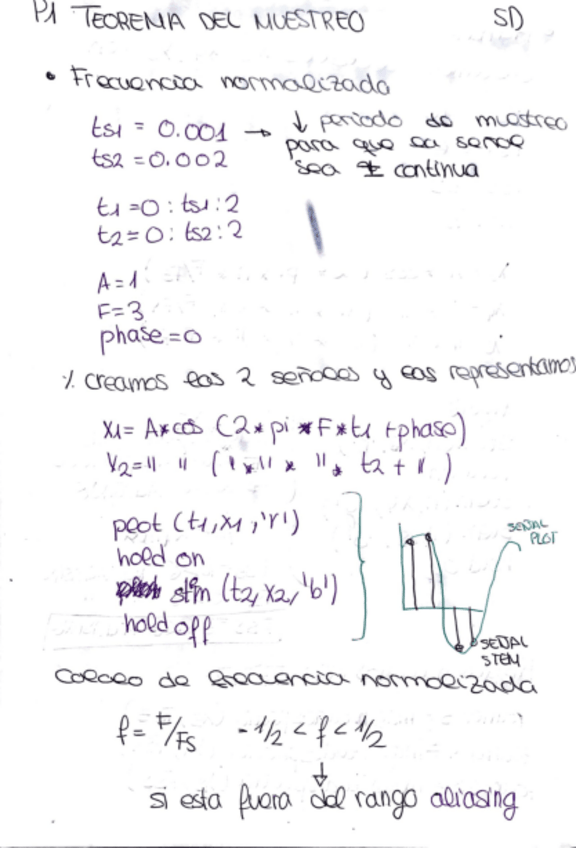 P1 TEOREMA DEL MUESTREO SD
• Frecuencia normalizada
ts1 = 0.001 → ↓ periodo de muestreo
ts2 = 0.002 para que la señal
sea ± continua
t1 = 0 : ts1 : 2
t2 = 0 : ts2 : 2
A = 1
F = 3
phase = 0
% creamos las 2 señales y las representamos
x1 = A*cos (2*pi*F*t1 + phase)
X2 = " " ( " * " * " * t2 + " )
plot (t1, x1, 'r')
hold on
stem (t2, x2, 'b')
hold off
SEÑAL
PLOT
SEÑAL
STEM
Calculo de frecuencia normalizada
f = F/Fs - 1/2 < f < 1/2
↓
si esta fuera del rango aliasing